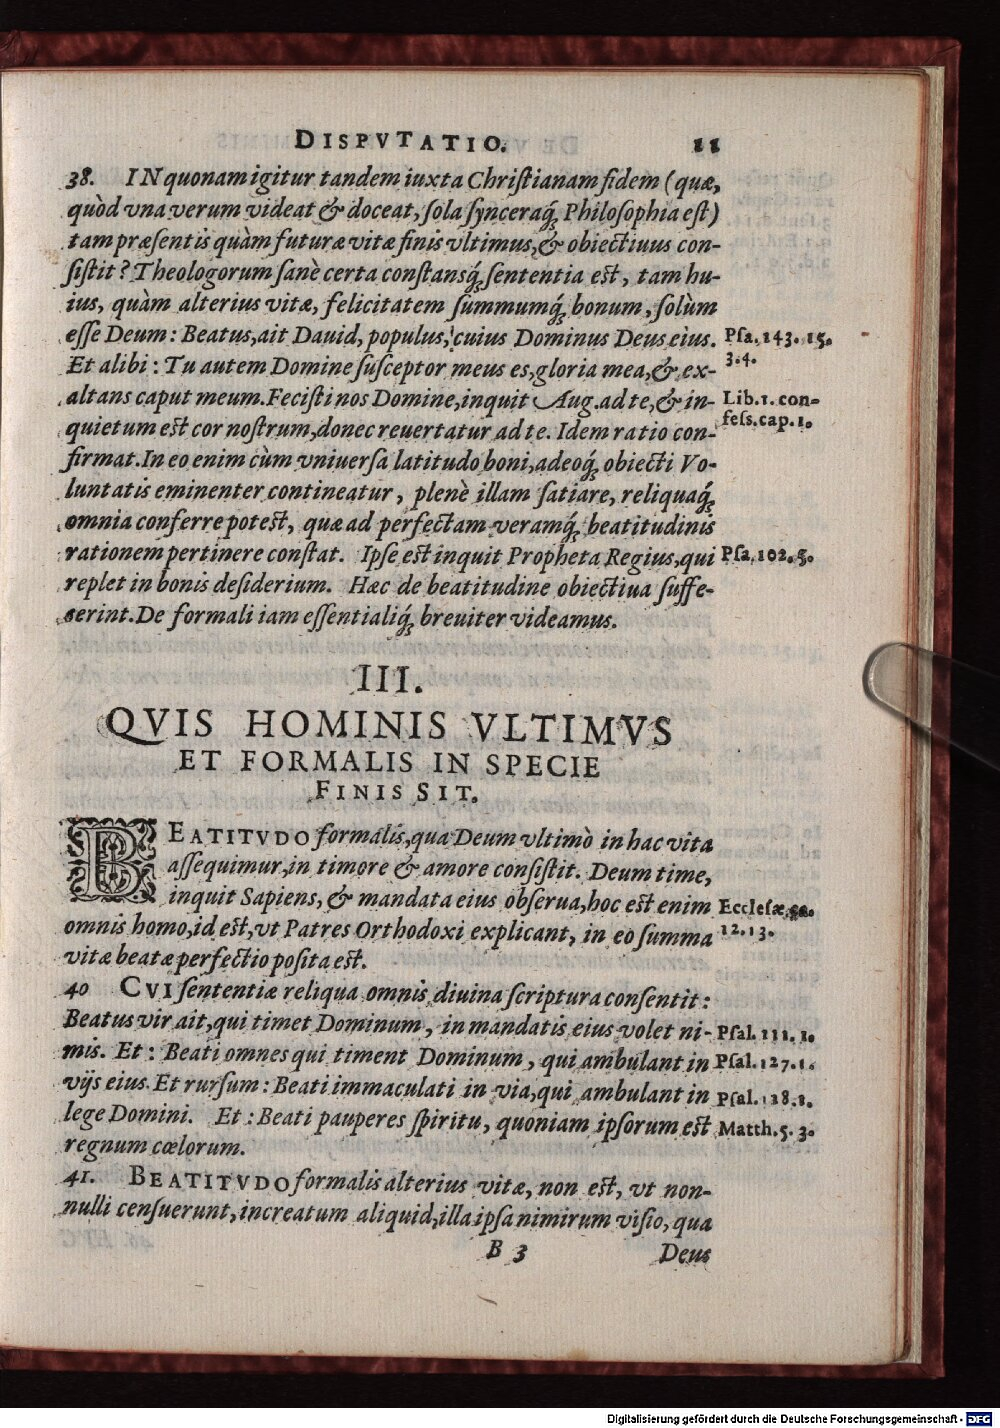 DISPVTATIO. 11
38. IN quonam igitur tandem iuxta Chriſtianam fidem (quæ,
quòd vna verum videat & doceat, ſola ſynceraq́; Philoſophia eſt)
tam præſentis quàm futuræ vitæ finis vltimus, & obiectiuus con-
ſiſtit? Theologorum ſanè certa conſtansq́; ſententia eſt, tam hu-
ius, quàm alterius vitæ, felicitatem ſummumq́; bonum, ſolùm
eſſe Deum: Beatus, ait Dauid, populus, cuius Dominus Deus eius.
Pſa. 143. 15.
Et alibi: Tu autem Domine ſuſceptor meus es, gloria mea, & ex-
3. 4.
altans caput meum. Feciſti nos Domine, inquit Aug. ad te, & in-
Lib. 1. con-
quietum eſt cor noſtrum, donec reuertatur ad te. Idem ratio con-
feſs. cap. 1.
firmat. In eo enim cùm vniuerſa latitudo boni, adeoq́; obiecti Vo-
luntatis eminenter contineatur, plenè illam ſatiare, reliquaq́;
omnia conferre poteſt, quæ ad perfectam veramq́; beatitudinis
rationem pertinere conſtat. Ipſe eſt inquit Propheta Regius, qui
Pſa. 102. 5.
replet in bonis deſiderium. Hæc de beatitudine obiectiua ſuffe-
cerint. De formali iam eſſentialiq́; breuiter videamus.
III.
QVIS HOMINIS VLTIMVS
ET FORMALIS IN SPECIE
FINIS SIT.
BEATITVDO formalis, qua Deum vltimò in hac vita
aſſequimur, in timore & amore conſiſtit. Deum time,
inquit Sapiens, & mandata eius obſerua, hoc eſt enim
Eccleſæ.
omnis homo, id eſt, vt Patres Orthodoxi explicant, in eo ſumma
12. 13.
vitæ beatæ perfectio poſita eſt.
40 CVI ſententiæ reliqua omnis diuina ſcriptura conſentit:
Beatus vir ait, qui timet Dominum, in mandatis eius volet ni-
Pſal. 111. 1.
mis. Et: Beati omnes qui timent Dominum, qui ambulant in
Pſal. 127. 1.
vijs eius. Et rurſum: Beati immaculati in via, qui ambulant in
Pſal. 118. 1.
lege Domini. Et: Beati pauperes ſpiritu, quoniam ipſorum eſt
Matth. 5. 3.
regnum cœlorum.
41. BEATITVDO formalis alterius vitæ, non eſt, vt non-
nulli cenſuerunt, increatum aliquid, illa ipſa nimirum viſio, qua
B 3 Deus
Digitalisierung gefördert durch die Deutsche Forschungsgemeinschaft - DFG